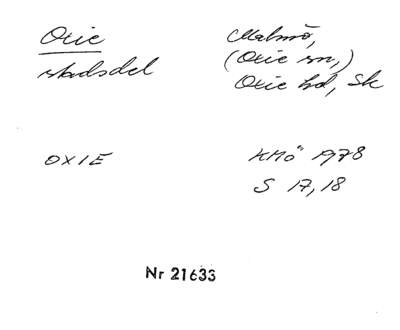 Oxie
stadsdel
Malmö,
(Oxie sn,)
Oxie hd, Sk
OXIE
KMÖ 1978
S 17, 18
Nr 21633